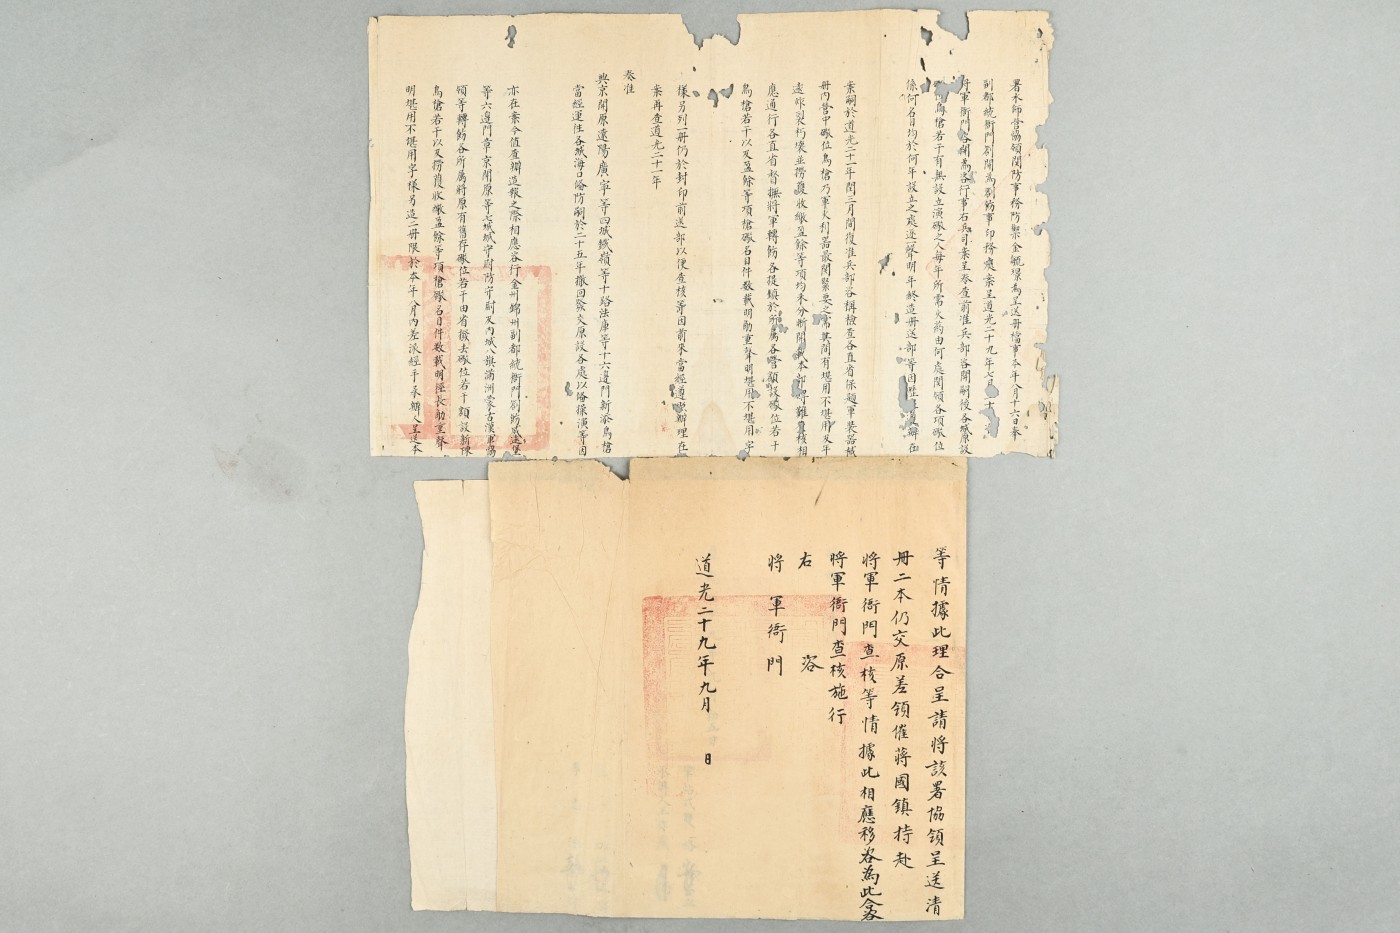 署水師營協領関防事務防禦金毓景為呈送冊檔事本年八月十六日奉
副都統衙門劄開為劄飭事印務處案呈道光二十九年七月十
將軍衙門咨開為咨行事右兵司案呈奉查前准兵部咨開嗣後各城原設
鳥槍若干有無設立演礮之人每年所需火葯由何處関領各項礮位
係何名目均於何年設立之處逐一聲明年終造冊送部等因歷辦在
案嗣於道光二十一年閏三月間復准兵部咨稱檢查各直省保題軍裝器械
冊內營中礮位鳥槍乃軍火利器最関緊要之需其間有堪用不堪用及年
遠炸裂朽壞並撈獲收繳盈餘等項均未分晰開載本部碍難查核相
應通行各直省督撫將軍轉飭各提鎮於所屬各營額設礮位若干
鳥槍若干以及盈餘等項槍礮名目件數載明觔重聲明堪用不堪用字
樣另列一冊仍於封印前送部以便查核等因前來當經遵照辦理在
案再查道光二十一年
奏准
興京開原遼陽廣寧等四城鐵嶺等十路法庫等十六邊門新添鳥槍
當經運往各城海口備防嗣於二十五年撤回發交原設各處以備操演等因
亦在案今值查辦造報之際相應咨行金州錦州副都統衙門劄飭威遠堡
等六邊門章京開原等七城城守尉防守尉及內城八旗滿洲蒙古漢軍協
領等轉飭各所屬將原有舊存礮位若干由省撥去礮位若干額設新添
鳥槍若干以及撈獲收繳盈餘等項槍礮名目件數載明徑長觔重聲
明堪用不堪用字樣另造二冊限於本年八月內差派經手承辦人呈送本
等情據此理合呈請將該署協領呈送清
冊二本仍交原差領催蔣國鎮持赴
將軍衙門查核等情據此相應移咨為此合咨
將軍衙門查核施行
右咨
將軍衙門
道光二十九年九月 日